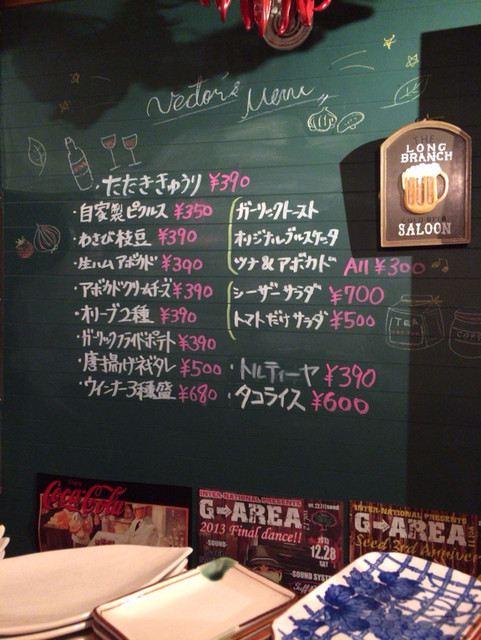 Vector's Menu
・たたききゅうり ¥390
・自家製ピクルス ¥350
・わさび枝豆 ¥390
・生ハムアボカド ¥390
・アボカドクリームチーズ ¥390
・オリーブ2種 ¥390
ガーリックフライドポテト ¥390
・唐揚げネギダレ ¥500
・ウィンナー3種盛 ¥680
ガーリックトースト
オリジナルブルスケッタ
ツナ&アボカド All ¥300
シーザーサラダ ¥700
トマトだけサラダ ¥500
・トルティーヤ ¥390
・タコライス ¥600
THE
LONG
BRANCH
COLD BEER
SALOON
TEA
Coca-Cola
INTER-NATIONAL PRESENTS
G→AREA
2013 Final dance!!
2013
12.28
SAT
-SOUND
-SOUND SYSTEM
INTER-NATIONAL PRESENTS
G→AREA
Seed 3rd Anniver